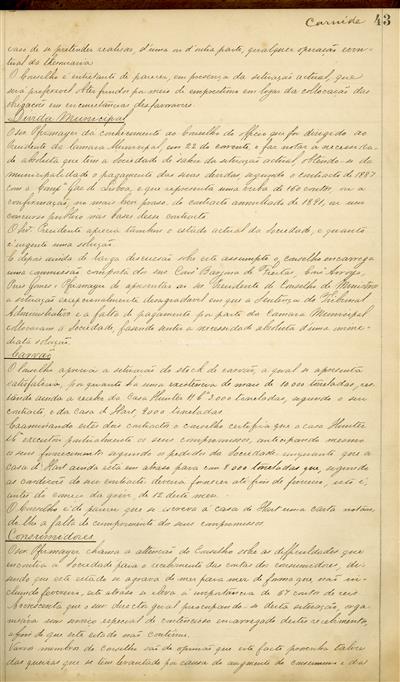 Carnide 43
caso de se pretender realisar, d'uma ou d'outra parte, qualquer operação
de thesouraria
O Conselho é entretanto de parecer, em presença da situação actual, que
será preferivel obter fundos por meio de emprestimo em logar da collocação das
obrigações em circumstancias desfavoraveis.
Divida Municipal
O snr. Ofsmayer da conhecimento ao Conselho do officio que foi dirigido ao
Presidente da Camara Municipal, em 22 do corrente e faz notar a necessida-
de absoluta que tem a Sociedade de sahir da situação actual, obtendo-se da
municipalidade o pagamento das suas dividas, segundo o contracto de 1887
com a Comp.ª Gaz de Lisboa, e que representa uma verba de 160 contos, ou a
confirmação, no mais breve praso, do contracto de 1891, ou um
concurso publico nas bases desse contracto
O Snr. Presidente aprecia tambem o estado actual da Sociedade, e quanto
é urgente uma solução.
E depois ainda de larga discussão sobre este assumpto o conselho encarrega
uma commissão composta dos snrs Cons.º Barjona de Freitas, Arroyo,
Gomes e Ofsmayer de apresentar ao snr Presidente do Conselho de Ministros
a situação excepcionalmente desagradavel em que a Sentença do Tribunal
Administrativo e a falta de pagamento por parte da Camara Municipal
collocaram a Sociedade, fazendo sentir a necessidade absoluta d'uma imme-
diata solução.
Carvão
O Conselho aprecia a situação do stock de carvão, a qual se apresenta
satisfatoria, por quanto ha uma existencia de mais de 10.000 toneladas, res-
tando ainda a receber da Casa Hunter 3.000 toneladas, segundo o seu
contracto, e da casa d'Hart, 9000 toneladas.
Examinando estes dois contractos o conselho certifica que a casa Hunter
executou pontualmente os seus compromissos, antecipando mesmo
o seu fornecimento segundo os pedidos da Sociedade, emquanto que a
casa d'Hart ainda está em atraso para com 8000 toneladas que, segundo
as condições do seu contracto devera fornecer até fins de fevereiro, isto é,
antes do começo da greve, de 12 deste mez.
O Conselho é de parecer que se escreva á casa de Hart uma carta notan-
do-lhe a falta de cumprimento dos seus compromissos.
Consumidores
O snr. Ofsmayer chama a attenção do Conselho sobre as difficuldades que
encontra a Sociedade para o recebimento das contas dos consumidores, di-
zendo que este estado se agrava de mez para mez de forma que, in-
cluindo fevereiro, este atraso se eleva á importancia de 67 contos de reis
Accrescenta que o snr director geral preoccupando-se desta situação, orga-
nisara um serviço especial de contencioso encarregado destes recebimentos,
a fim de que este estado não continue.
Varios membros do Conselho são de opinião que este facto provenha talvez
das queixas que se tem levantado por causa do augmento do consummo e das